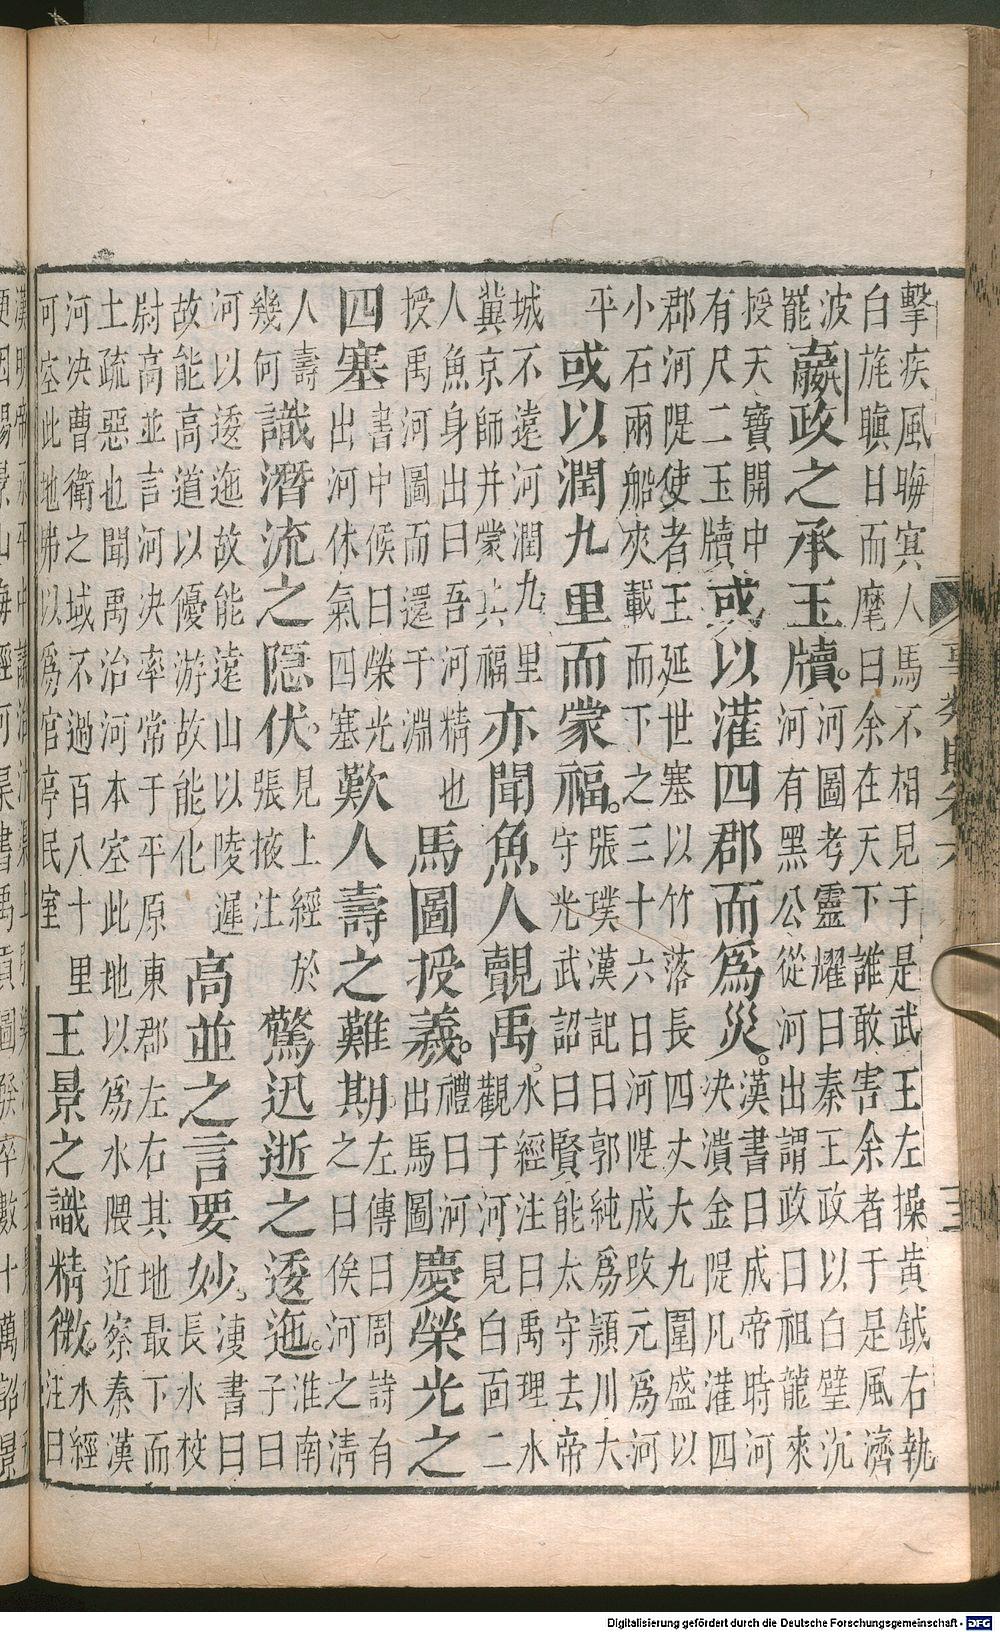 擊疾風晦冥人馬不相見于是武王左操黃鉞右執
白旄瞋日而麾曰余在天下誰敢害余者于是風濟
波
罷
嬴政之承玉牘。
河圖考靈耀曰秦王政以白璧沉
河有黑公從河出謂政曰祖龍來
授天寶開中
有尺二玉牘
或以灌四郡而爲災。
漢書曰成帝時河
決潰金隄凡灌四
郡河隄使者王延世塞以竹落長四丈大九圍盛以
小石兩船夾載而下之三十六日河隄成改元爲河
平
或以潤九里而蒙福。
張璞漢記曰郭純爲潁川大
守光武詔曰賢能太守去帝
城不遠河潤九里
冀京師并蒙其福
亦聞魚人覿禹。
水經注曰禹理水
觀于河見白面二
人魚身出曰吾河精也
授禹河圖而還于淵
馬圖授義。
禮曰河
出馬圖
慶榮光之
四塞
書中候曰榮光
出河休氣四塞
歎人壽之難期
左傳曰周詩有
之曰俟河之清
人壽
幾何
識潛流之隱伏。
見上經於
張掖注
驚迅逝之逶迤。
淮南
子曰
河以逶迤故能遠山以陵遲
故能高道以優游故能化
高並之言要妙。
漢書曰
長水校
尉高並言河決率常于平原東郡左右其地最下而
土疏惡也聞禹治河本空此地以爲水隈近察秦漢
河決曹衛之域不過百八十里
可空此地勿以爲官亭民室
王景之識精微。
水經
注曰
事類賦卷六
三
Digitalisierung gefördert durch die Deutsche Forschungsgemeinschaft - DFG